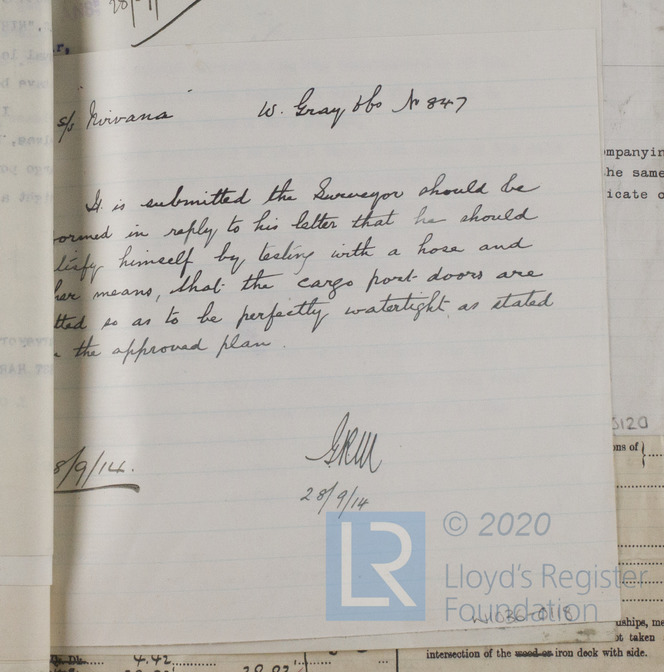 s/s "Nirvana" W. Gray & Co No 847
It is submitted the Surveyor should be
ormed in reply to his letter that he should
tisfy himself by testing with a hose and
her means, that the cargo port doors are
tted so as to be perfectly watertight as stated
the approved plan.
8/9/14.
GRM
28/9/14
LR © 2020
Lloyd's Register
Foundation
W1036-0118
mpanyin
he same
icate o
5120
ns of
uships, me
ot taken
intersection of the wood or iron deck with side.
4.42